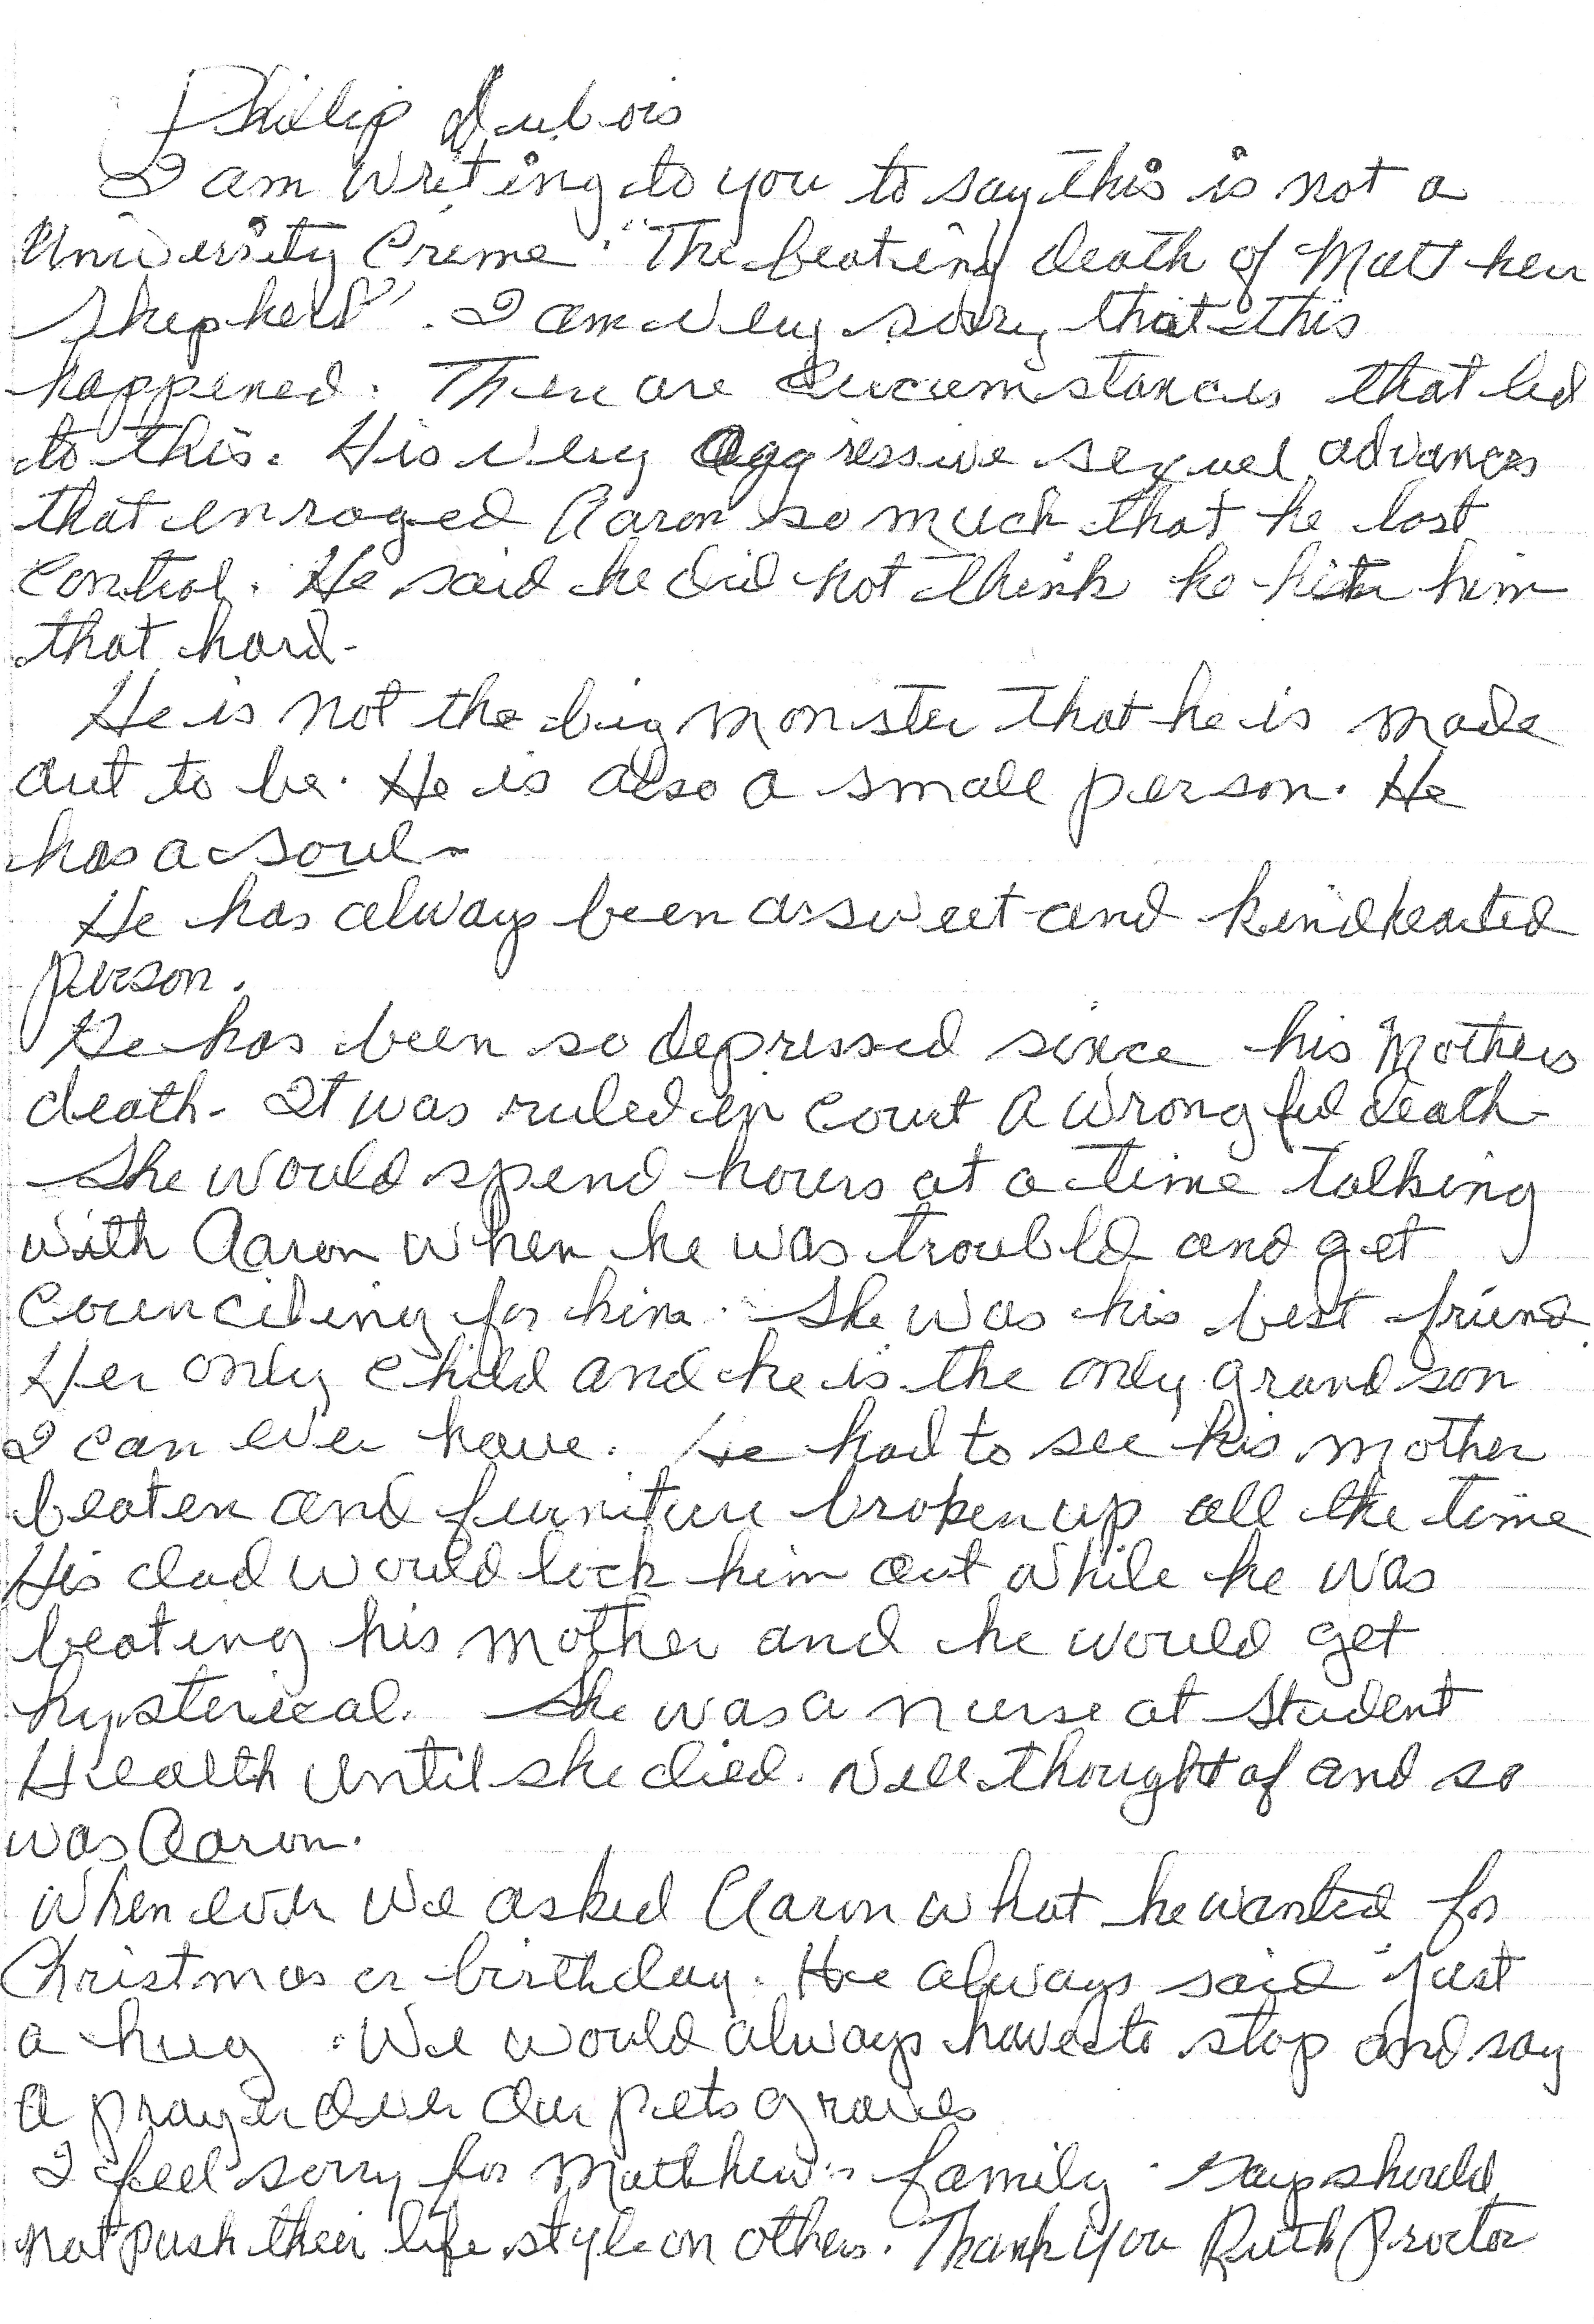 Phillip Dubois
I am writing to you to say this is not a
University Crime. "The beating death of Matthew
Shepherd". I am very sorry that this
happened. There are circumstances that led
to this. His very aggressive sexuel advances
that enraged Aaron so much that he lost
control. He said he did not think he hit him
that hard.
He is not the big monster that he is made
out to be. He is also a small person. He
has a soul.
He has always been a sweet and kindhearted
person.
He has been so depressed since his Mothers
death. It was ruled in court a wrongful death
She would spend hours at a time talking
with Aaron when he was troubld and get
Counciling for him. She was his best friend.
Her only child and he is the only grandson
I can ever have. He had to see his mother
beaten and furniture broken up all the time
His dad would lock him out while he was
beating his mother and he would get
hysterical. She was a nurse at Student
Health until she died. Well thought of and so
was Aaron.
When ever we asked Aaron what he wanted for
Christmas or birthday. He always said "just
a hug. We would always have to stop and say
a prayer over our pets graves
I feel sorry for Matthew's family. Gays should
not push their life style on others. Thank You Ruth Proctor